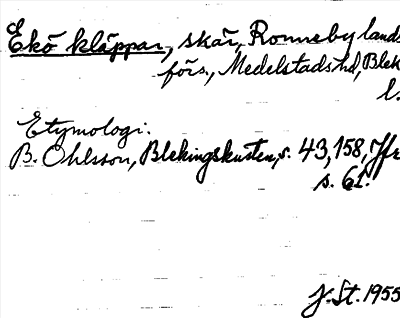 Ekö kläppar, skär, Ronneby lands
förs., Medelstads hd, Blek
l.
Etymologi:
B. Ohlsson, Blekingskusten, s. 43, 158, Jfr
s. 61.
J. St. 1955